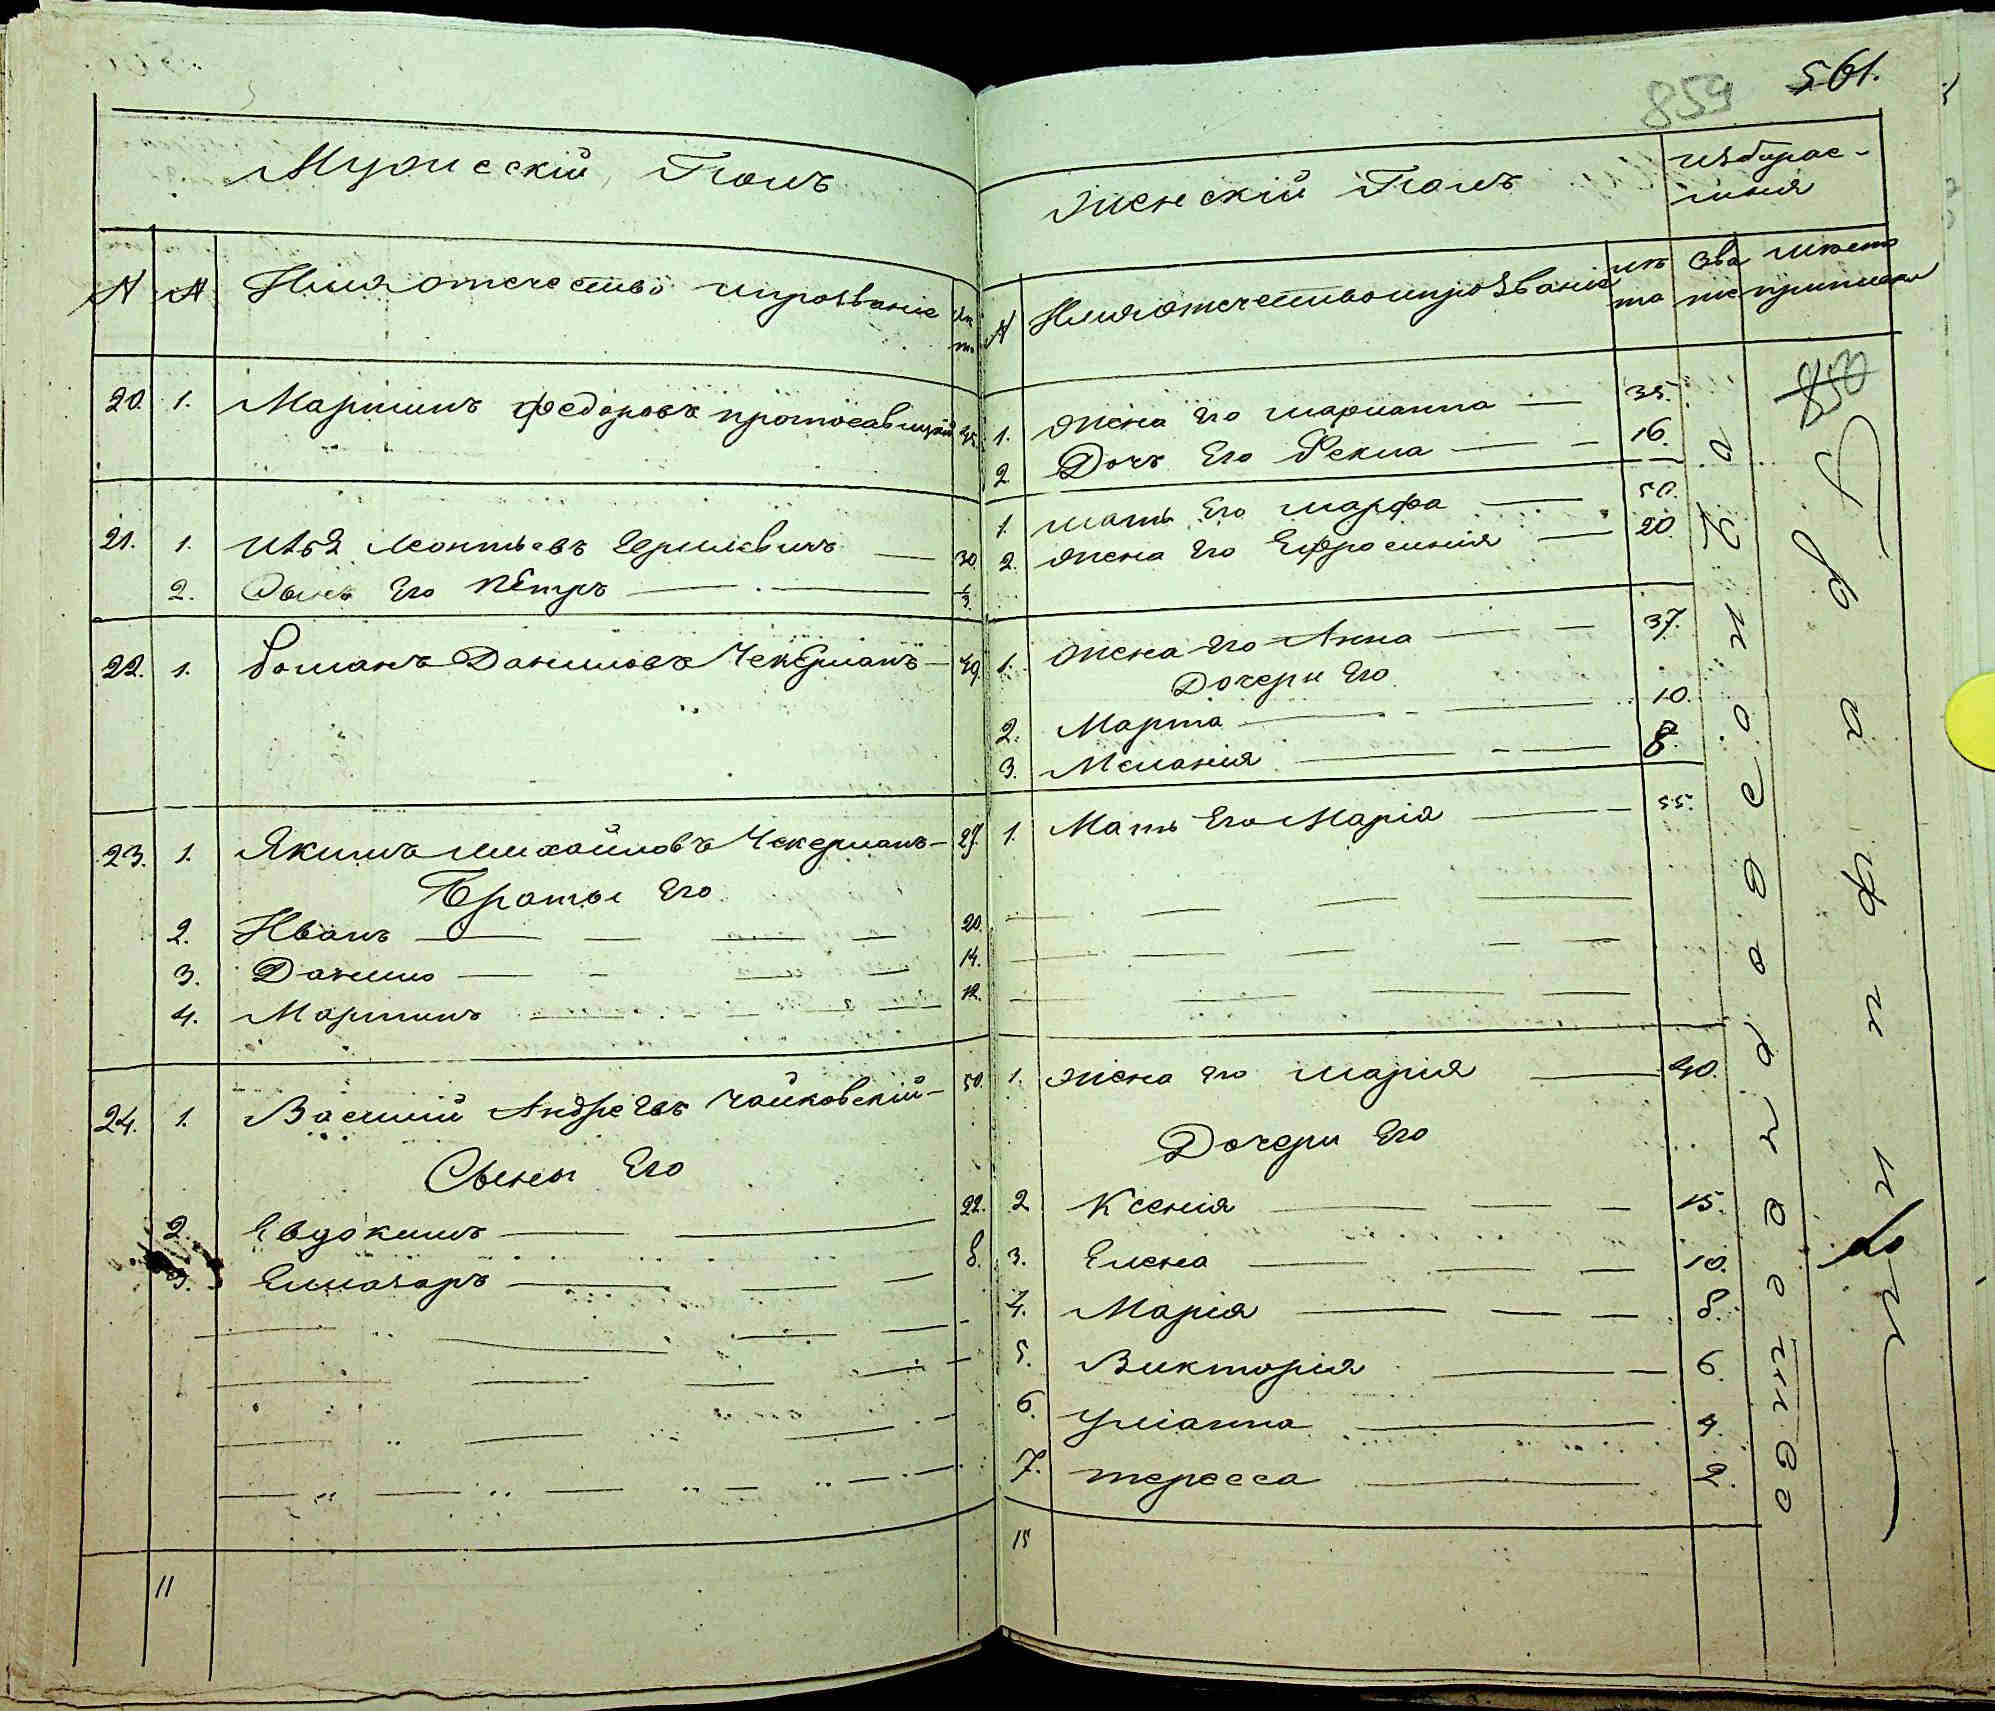 561.
859
Мужескій Полъ
№ № Имя отечество ипрозвание лѣта
20. 1. Мартинъ Федоровъ протосавицкій 45.
21. 1. Леонтьевъ 30.
2. Сынъ Его Пётръ 1/3.
22. 1. Романъ Даниловъ Чекерманъ 49.
23. 1. Якимъ Михайловъ Чекерманъ 29.
Браты Его
2. Иванъ 20.
3. Данило 14.
4. Мартинъ 12.
24. 1. Василій Андреевъ Чайковскій 50.
Сыны Его
2. Евдокимъ 22.
3. Елиазаръ 8.
11
Женскій Полъ
№ Имя отечество ипрозваніе лѣта Зва ние мѣсто приписки
1. Жена его Марианна 35.
2. Дочь Его Фекла 16.
1. Мать Его Марфа 50.
2. Жена Его Ефросинія 20.
1. Жена Его Анна 37.
Дочери Его
2. Марта 10.
3. Меланія 8.
1. Мать Его Марія 55.
1. Жена его Марія 40.
Дочери Его
2. Ксенія 15.
3. Елена 10.
4. Марія 8.
5. Викторія 6.
6. Уліанна 4.
7. Тересса 2.
15
850